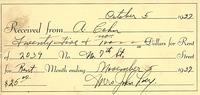 October 5 1937
Received from A. Cohn
Twenty five & no/100 Dollars for Rent
of 2039 No. 7th St. Street
for Rent Month ending November 5 1937
$25.00 Mrs. John